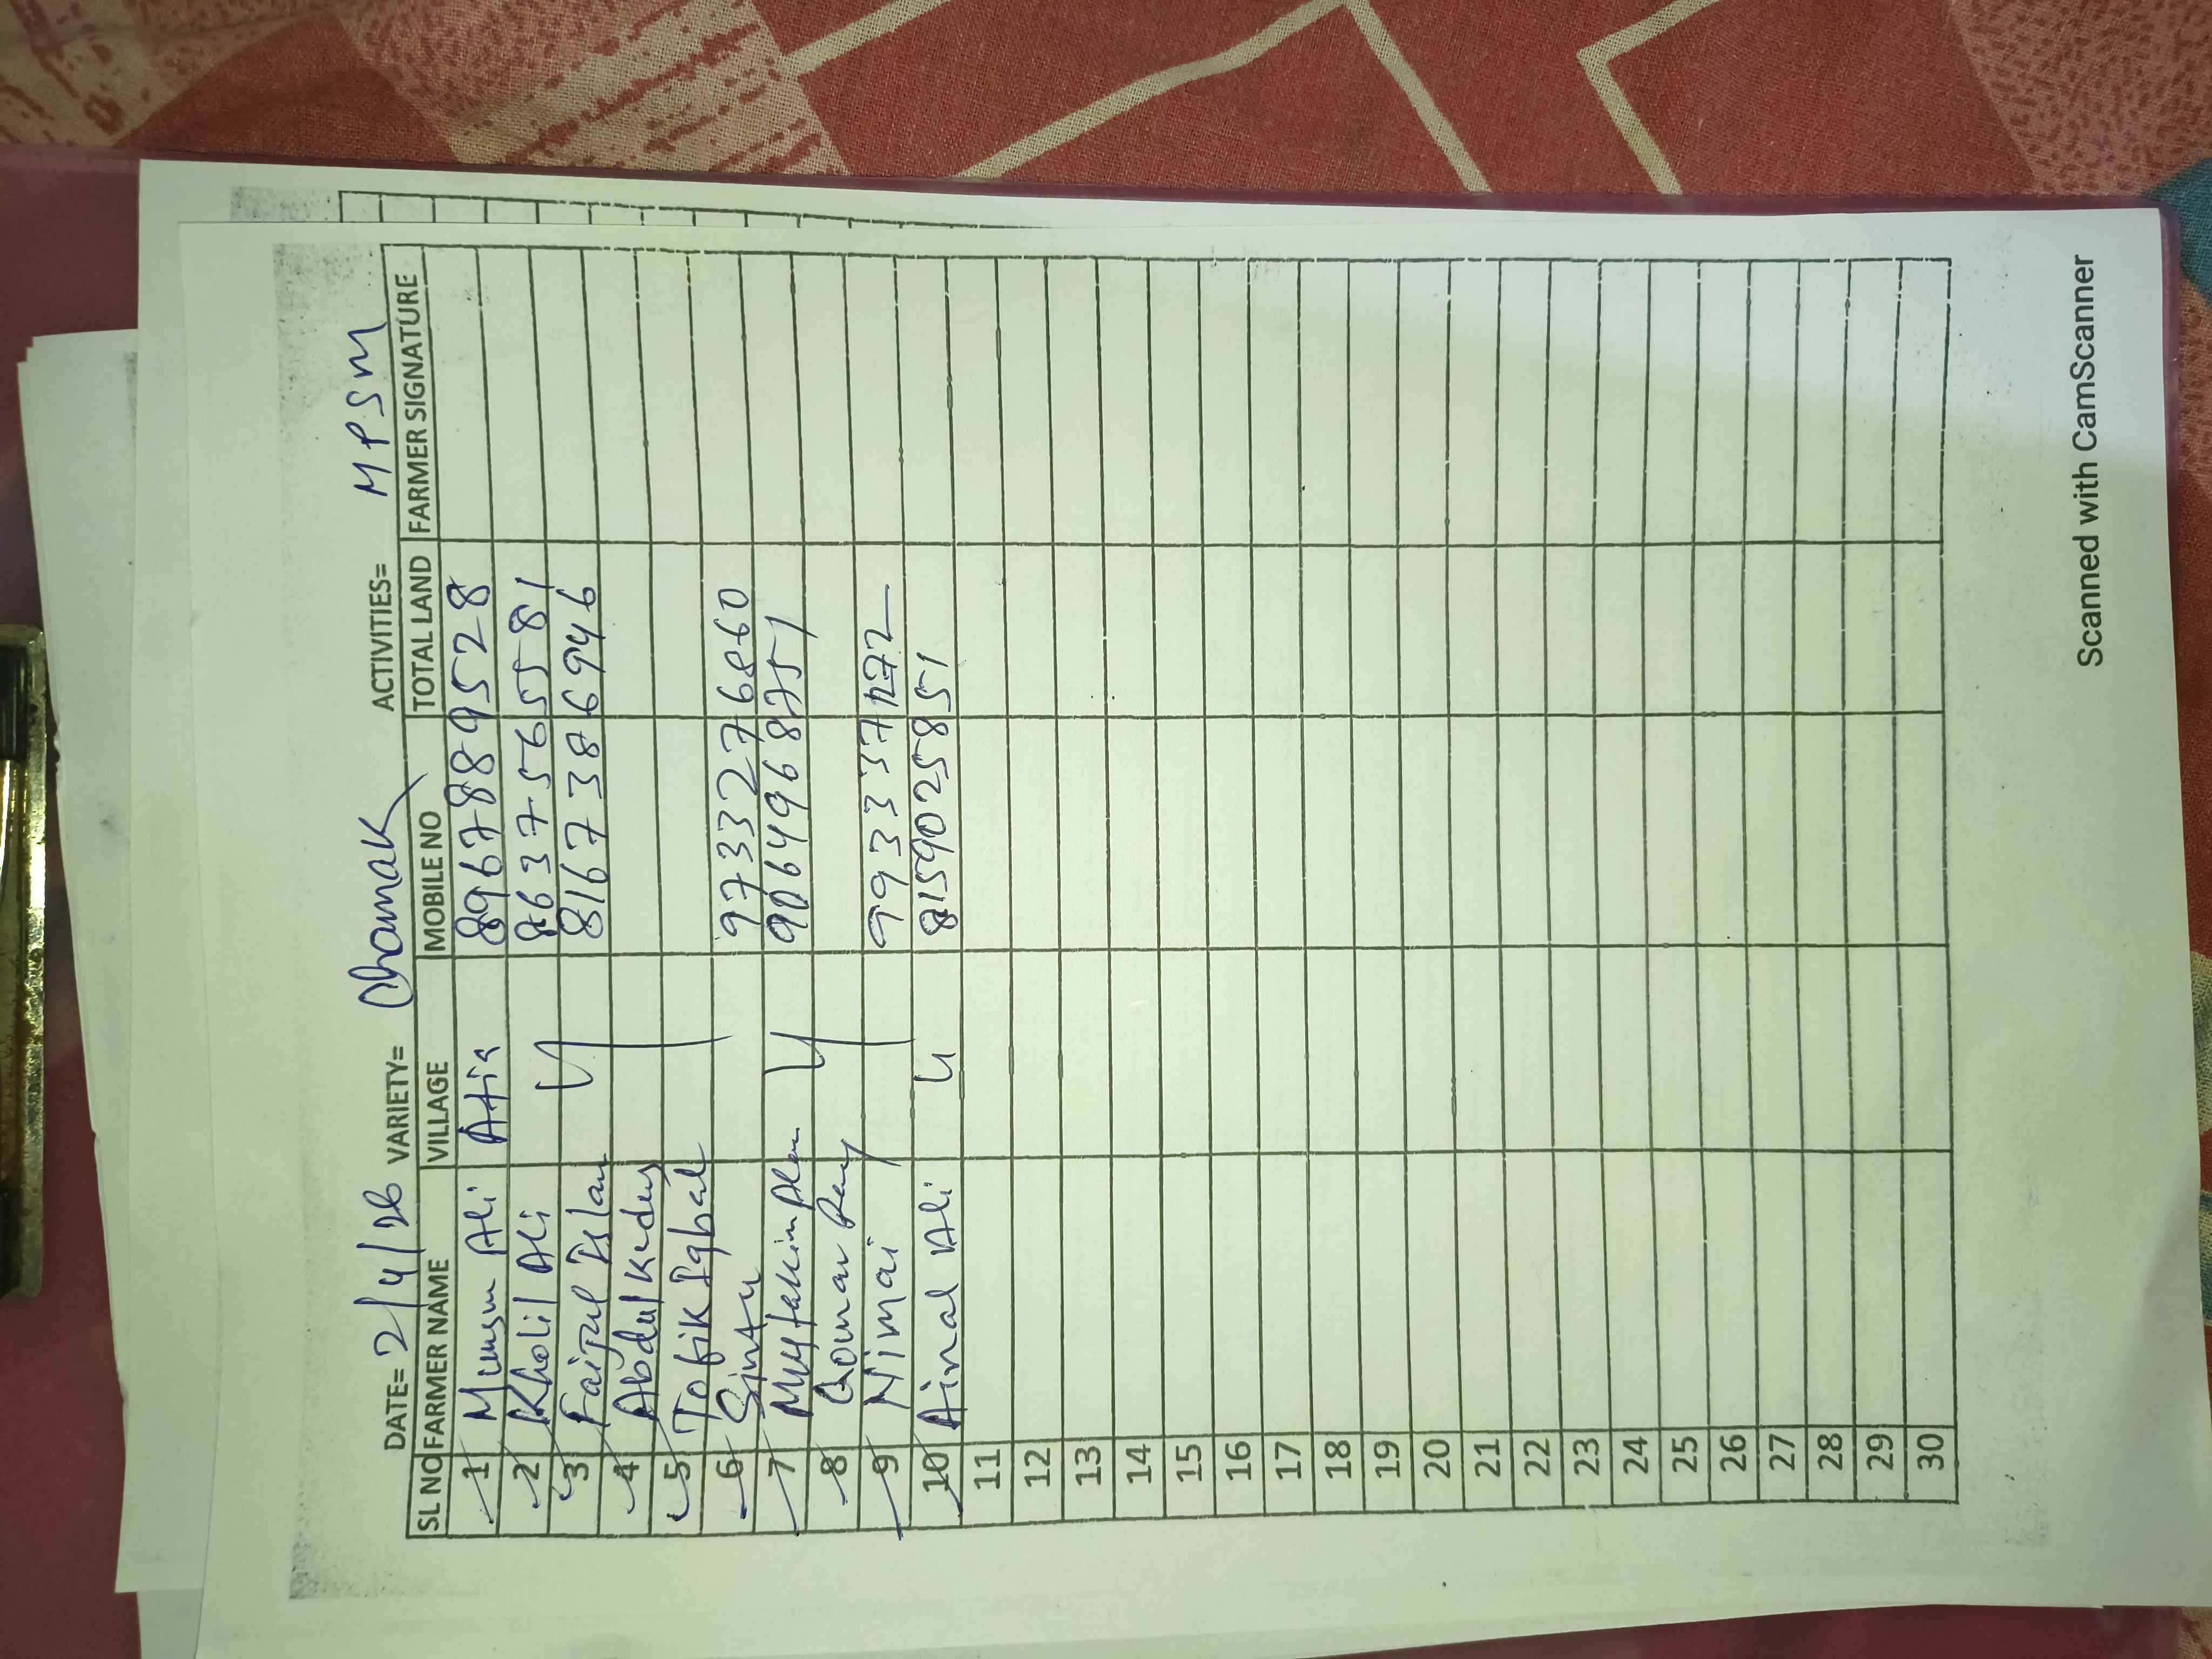 DATE= 2/4/26 VARIETY= Chamak ACTIVITIES= MPSM
SL NO FARMER NAME VILLAGE MOBILE NO TOTAL LAND FARMER SIGNATURE
1 Ali Atia 8967889528
2 Kholil Ali 8637565581
3 Faijul Islam 8167386946
4 Abdul Kedus
5 Tofik Iqbal
6 Sintu 9733276860
7 9064968751
8
9 Nimai
10 Ainal Ali 8159025851
11
12
13
14
15
16
17
18
19
20
21
22
23
24
25
26
27
28
29
30
Scanned with CamScanner